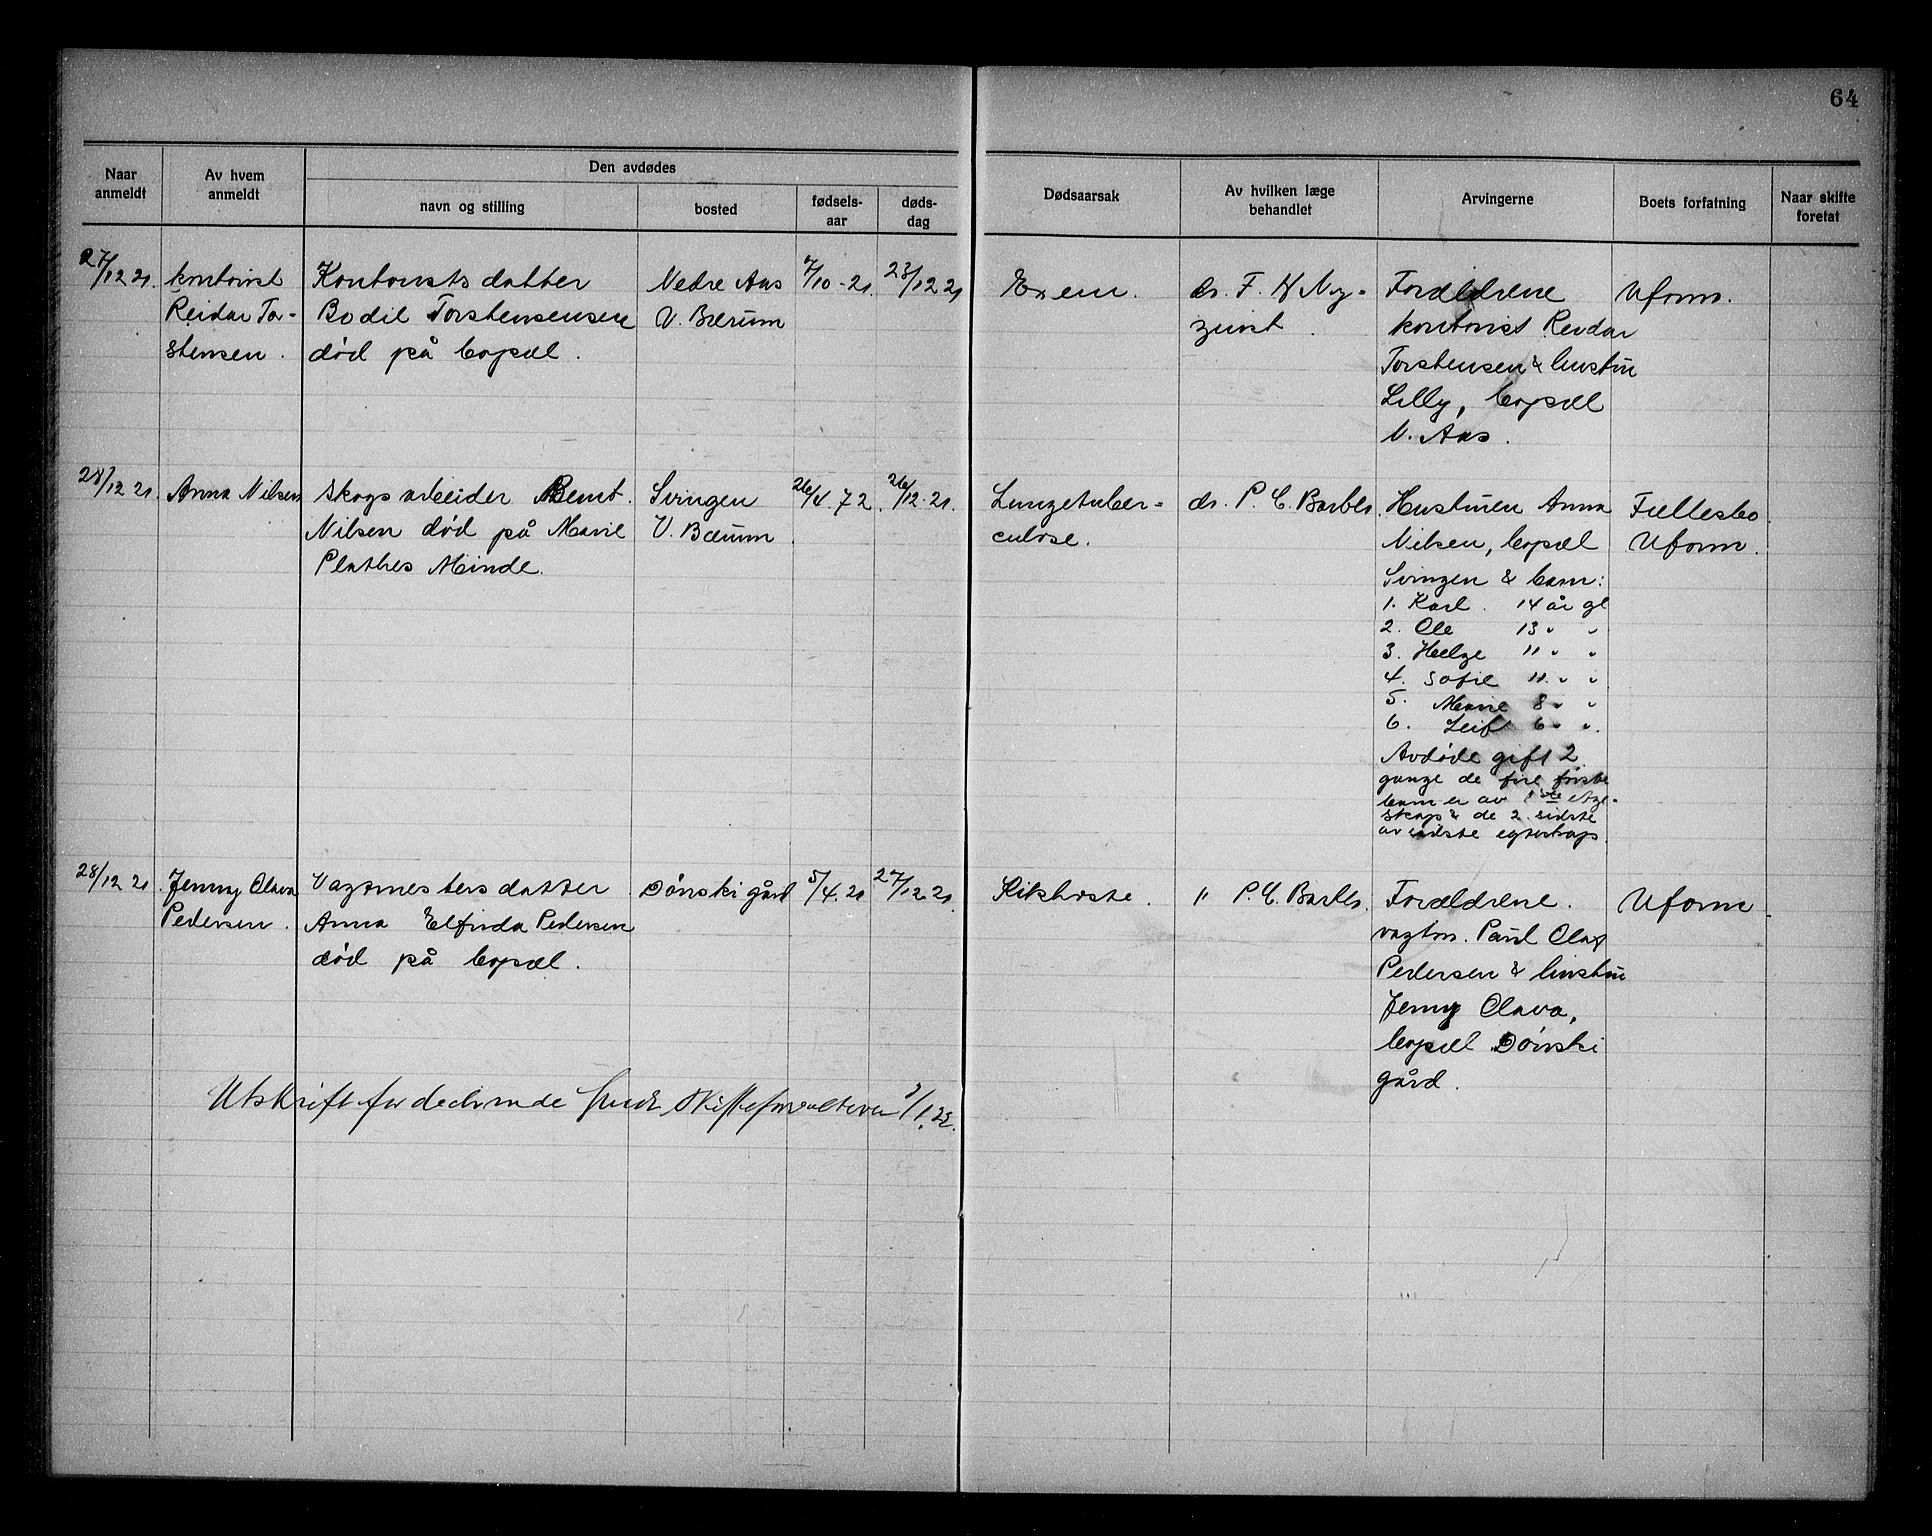 64
Naar anmeldt
Av hvem anmeldt
Den avdødes
navn og stilling
bosted
fødsels-aar
døds-dag
Dødsaarsak
Av hvilken læge behandlet
Arvingerne
Boets forfatning
Naar skifte foretat
27/12 21.
kontorist
Reidar Tor-
stensen.
Kontorists datter
Bodil Torstensensen
død på bopæl.
Nedre Aas
V. Bærum
7/10-21.
23/12 21
Exem.
dr. F. H Ny-
Forældrene
kontorist Reidar
Torstensen & hustru
Lilly, bopæl
N. Aas.
Uform.
28/12 21.
Anna Nilsen
Skogsarbeider Bernt.
Nilsen død på Marie
Plathes Minde.
Svingen
V. Bærum
26/4.72.
26/12.21.
Lungetuber-
culose.
dr. P. C. Borbler.
Hustruen Anna
Nilsen, bopæl
Svingen & barn:
1. Karl. 14 år gl
2. Ole 13 " "
3. Helge 11 " "
4. Sofie 11. " "
5. Marie 8 " "
6. Leif 6 " ".
Avdøde gift 2
gange de fire første
barn er av 1ste Æge-
skap & de 2 sidste
av sidste egteskap.
Fællesbo.
Uform.
28/12 21.
Jenny Clava
Pedersen.
Vagtmesters datter
Anna Elfrida Pedersen
død på bopæl.
Dønski gård
5/4.21
27/12 21.
Kikhoste.
" P. C. Borbler.
Forældrene.
vagtm. Paul Olaf
Pedersen & hustru
Jenny Clava,
bopæl Dønski
gård.
Uform.
Utskrift for dechrnde sendt Skifteforvalteren 2/1.22.